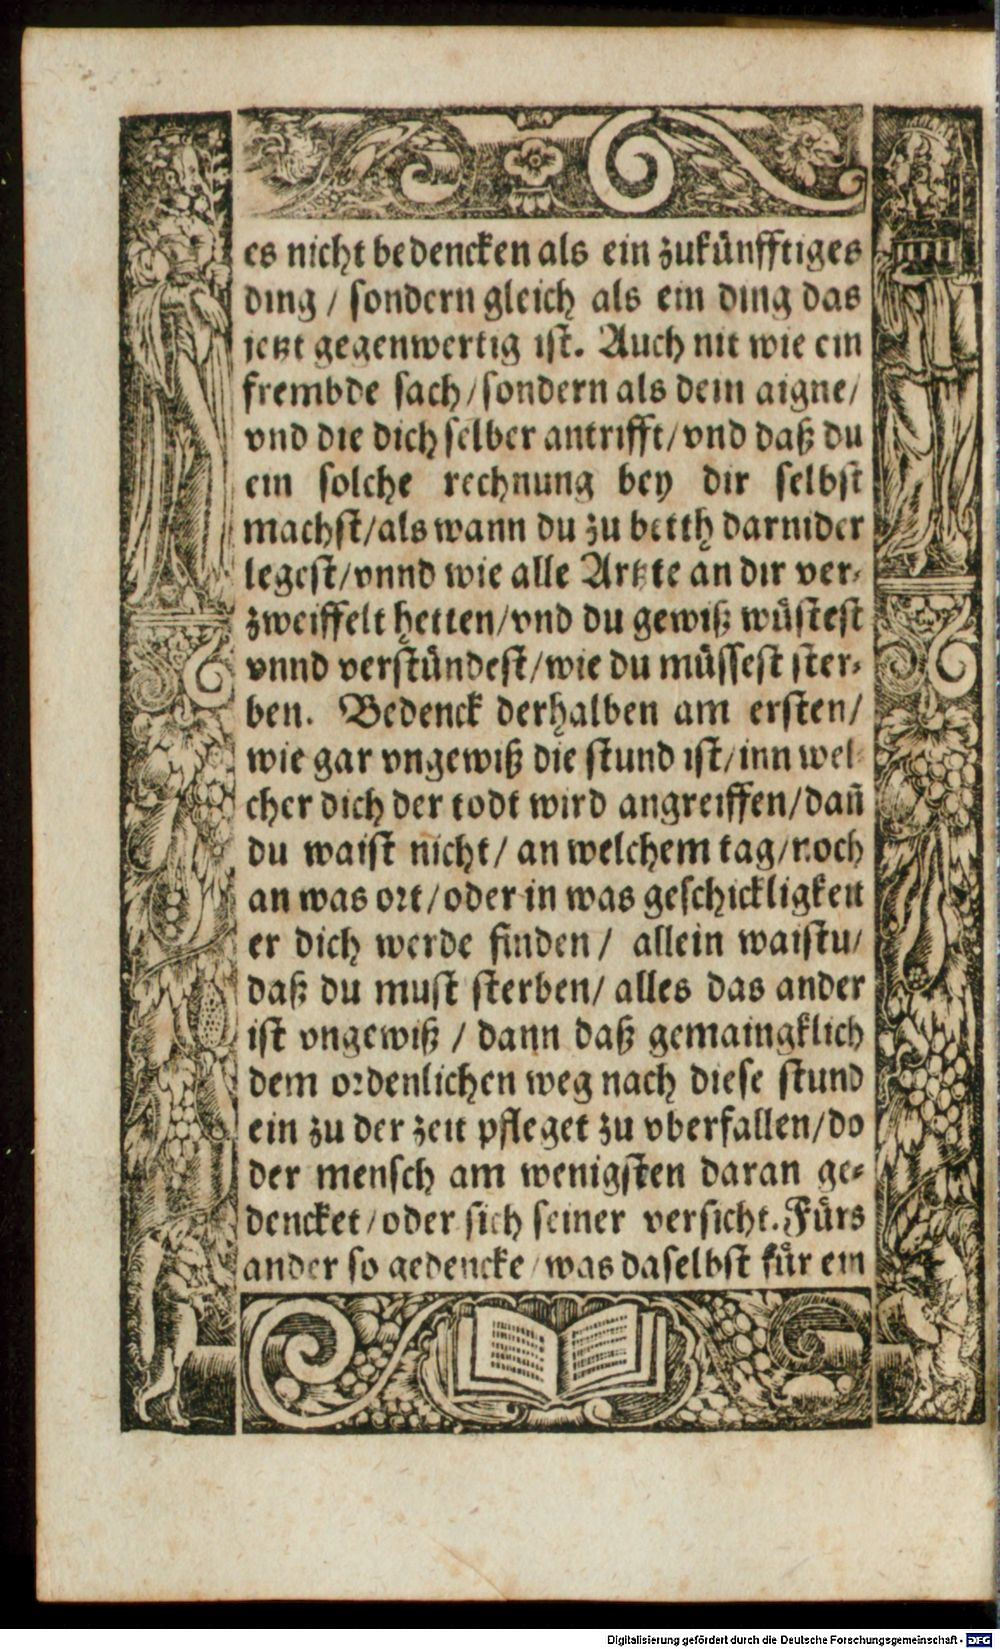 es nicht bedencken als ein zukünfftiges
ding / sondern gleich als ein ding das
jetzt gegenwertig ist. Auch nit wie ein
frembde sach/sondern als dein aigne/
vnd die dich selber antrifft/vnd daß du
ein solche rechnung bey dir selbst
machst/als wann du zu betth darnider
legest/vnnd wie alle Artzte an dir ver-
zweiffelt hetten/vnd du gewiß wüstest
vnnd verstündest/wie du müssest ster-
ben. Bedenck derhalben am ersten/
wie gar vngewiß die stund ist/inn wel-
cher dich der todt wird angreiffen/dañ
du waist nicht/ an welchem tag/noch
an was ort/oder in was geschickligkeit
er dich werde finden/ allein waistu/
daß du must sterben/ alles das ander
ist vngewiß / dann daß gemaingklich
dem ordenlichen weg nach diese stund
ein zu der zeit pfleget zu vberfallen/do
der mensch am wenigsten daran ge-
dencket/oder sich seiner versicht. Fürs
ander so gedencke/was daselbst für ein
Digitalisierung gefördert durch die Deutsche Forschungsgemeinschaft - DFG